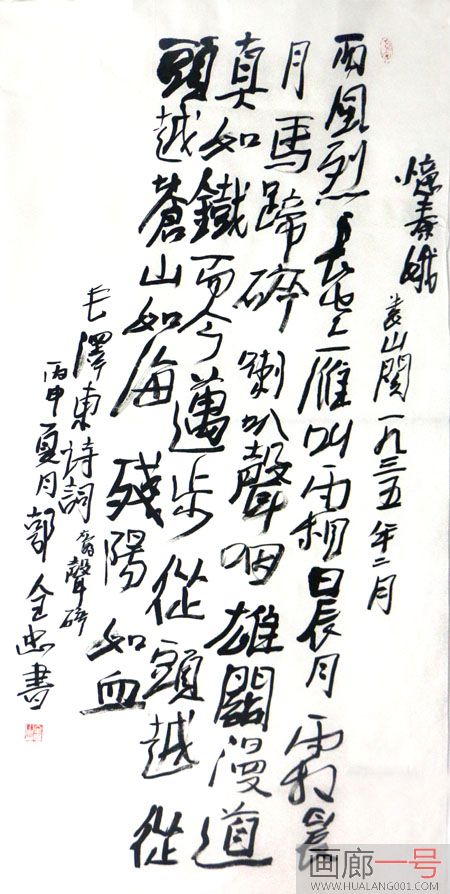 憶秦娥 娄山関一九三五年二月
西風烈長空雁叫霜晨月霜晨
月馬蹄碎喇叭聲咽雄關漫道
真如鐵而今邁步從頭越從
頭越蒼山如海殘陽如血
毛澤東诗詞 聲碎
丙申夏月郭全忠書
画廊一号
WWW.HUALANG001.COM